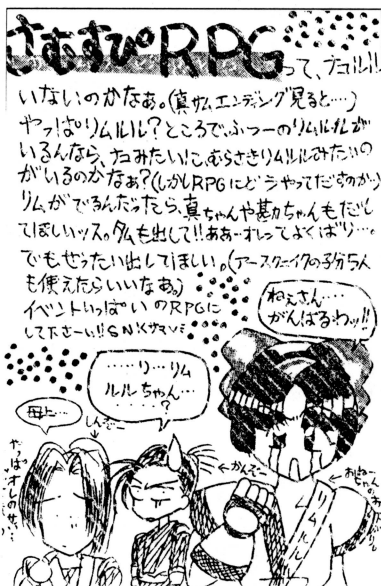 さむすぴRPGって、ナコルル
いないのかなぁ。(真サムエンディング見ると…)
やっぱリムルル?ところで、ふつーのリムルルが
いるんなら、ナコみたいに、むらさきリムルルみたいの
がいるのかなぁ?(しかしRPGにどうやってだすのか…)
リムがでるんだったら、真ちゃんや勘ちゃんもだし
てほしいッス。タムも出して!!ああーオレってよくばり…。
でもぜったい出してほしい。(アースクェイクの子分5人
も使えたらいいなあ。)
イベントいっぱいのRPGに
して下さーい!!SNKサマッ
ねぇさん……
がんばるわッ!!
……リ…リム
ルルちゃん…
……?
母上…
しんぞー
かんぞー
やっぱオレのサガ…
リムルル